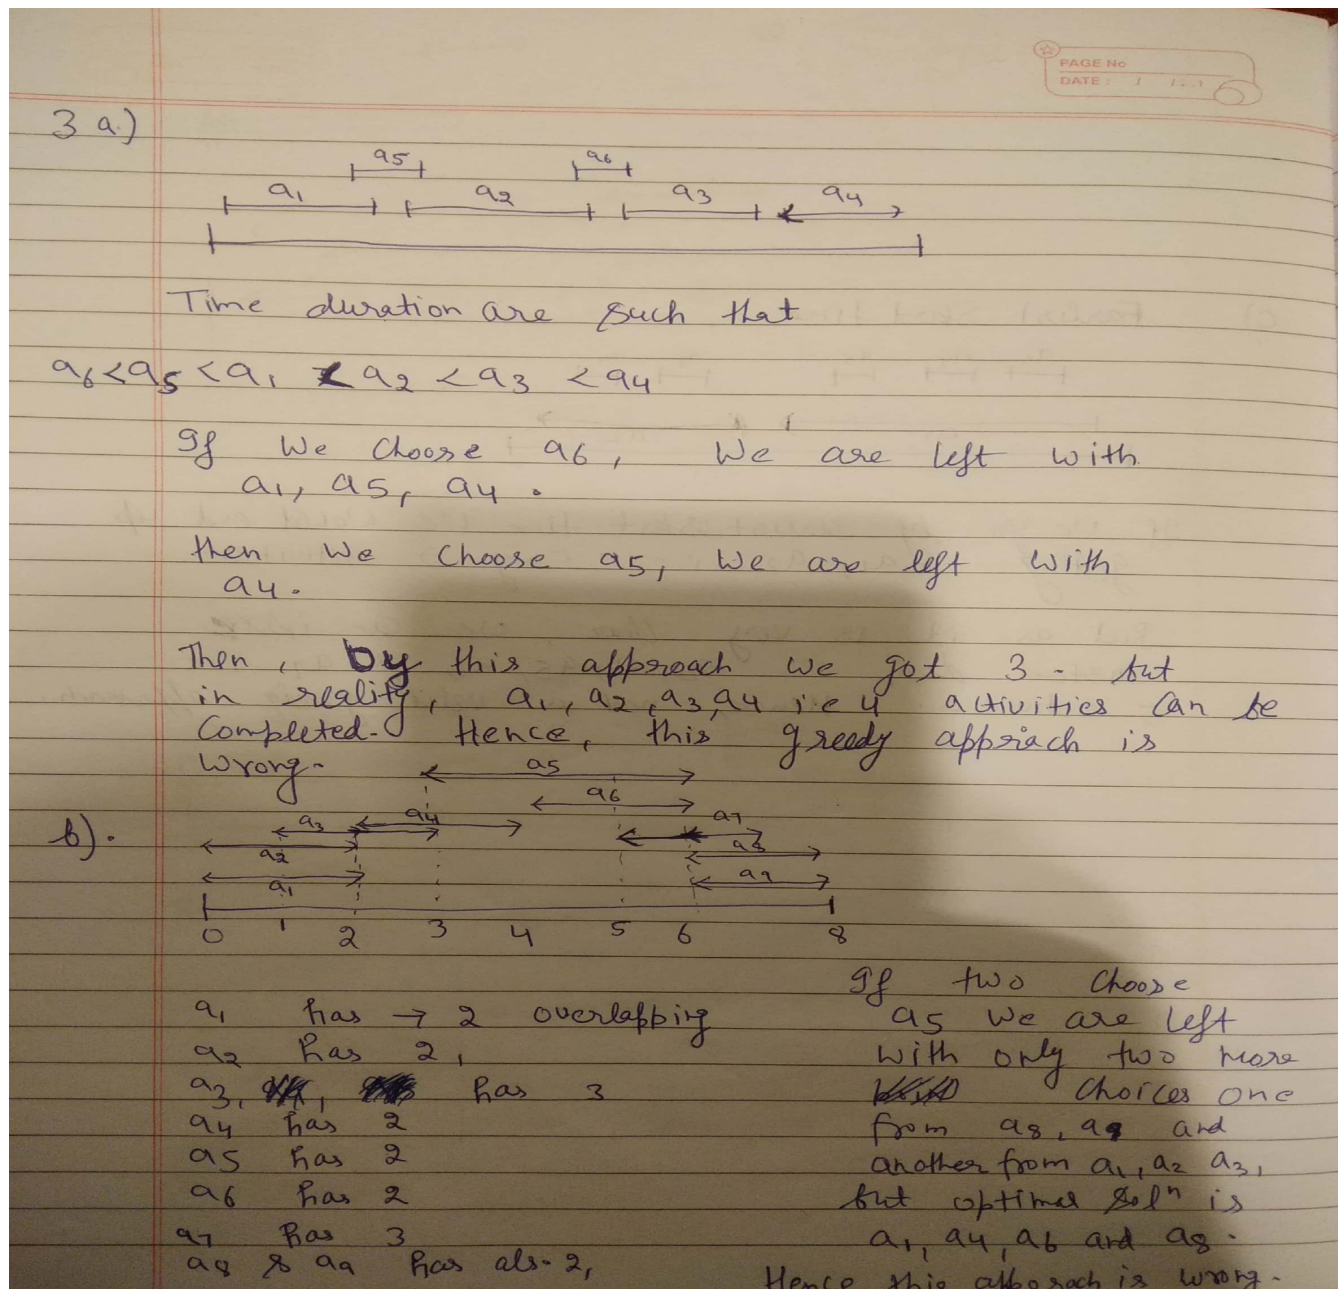 PAGE No
DATE: / /
3 a.)
a5 a6
a1 a2 a3 a4
Time duration are such that
a6 < a5 < a1 < a2 < a3 < a4
If We Choose a6, We are left with
a1, a5, a4.
then We Choose a5, We are left with
a4.
Then, by this approach we got 3 - but
in reality, a1, a2, a3, a4 i.e 4 activities can be
Completed. Hence, this greedy apprach is
wrong.
a5
a6
b). a3 a4 a7
a2 a8
a1 a9
0 1 2 3 4 5 6 8
a1 has → 2 overlapping
a2 has 2,
a3, has 3
a4 has 2
a5 has 2
a6 has 2
a7 has 3
a8 & a9 has als- 2,
If two Choose
a5 we are left
with only two more
Choices one
from a8, a9 and
another from a1, a2 a3,
but optimal Soln is
a1, a4, a6 and a8.
Hence this apporach is wrong.